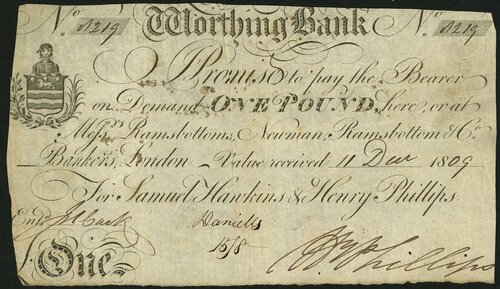 No. A219 Worthing Bank No. A219
I Promise to pay the Bearer
on Demand ONE POUND, here, or at
Messrs. Ramsbottoms, Newman, Ramsbottom & Co.
Bankers, London Value received 11 Decr 1809
For Samuel Hawkins & Henry Phillips
Entd.
Daniells
15/8
Hy Phillips
One